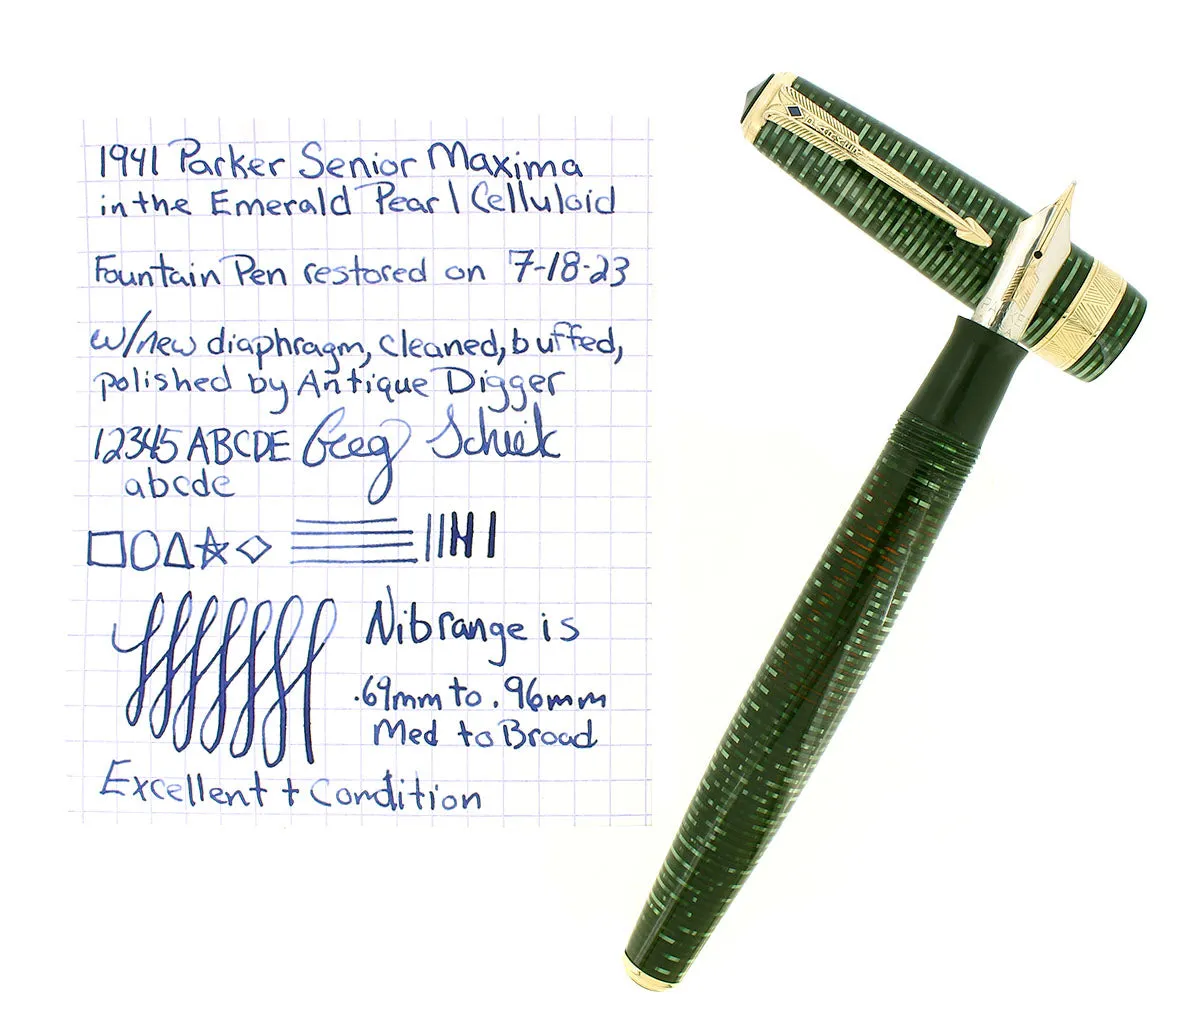 1941 Parker Senior Maxima
in the Emerald Pearl Celluloid
Fountain Pen restored on 7-18-23
w/new diaphragm, cleaned, buffed,
polished by Antique Digger
12345 ABCDE Greg Schiek
abcde
Nib range is
.69mm to .96mm
Med to Broad
Excellent + Condition